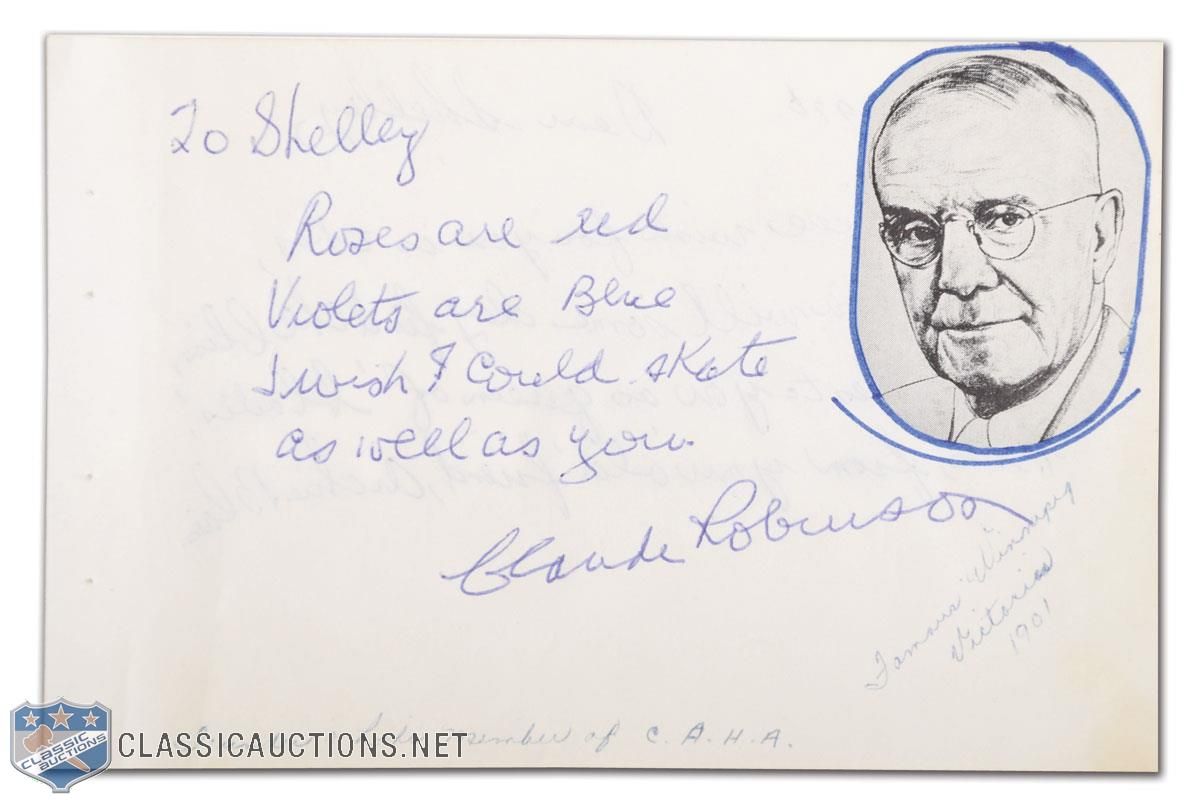 To Shelley
Roses are red
Violets are Blue
I wish I could skate
as well as you.
Claude Robinson
Famous "Winnipeg
Victorias
1901
member of C.A.H.A.
CLASSIC
AUCTIONS
CLASSICAUCTIONS.NET